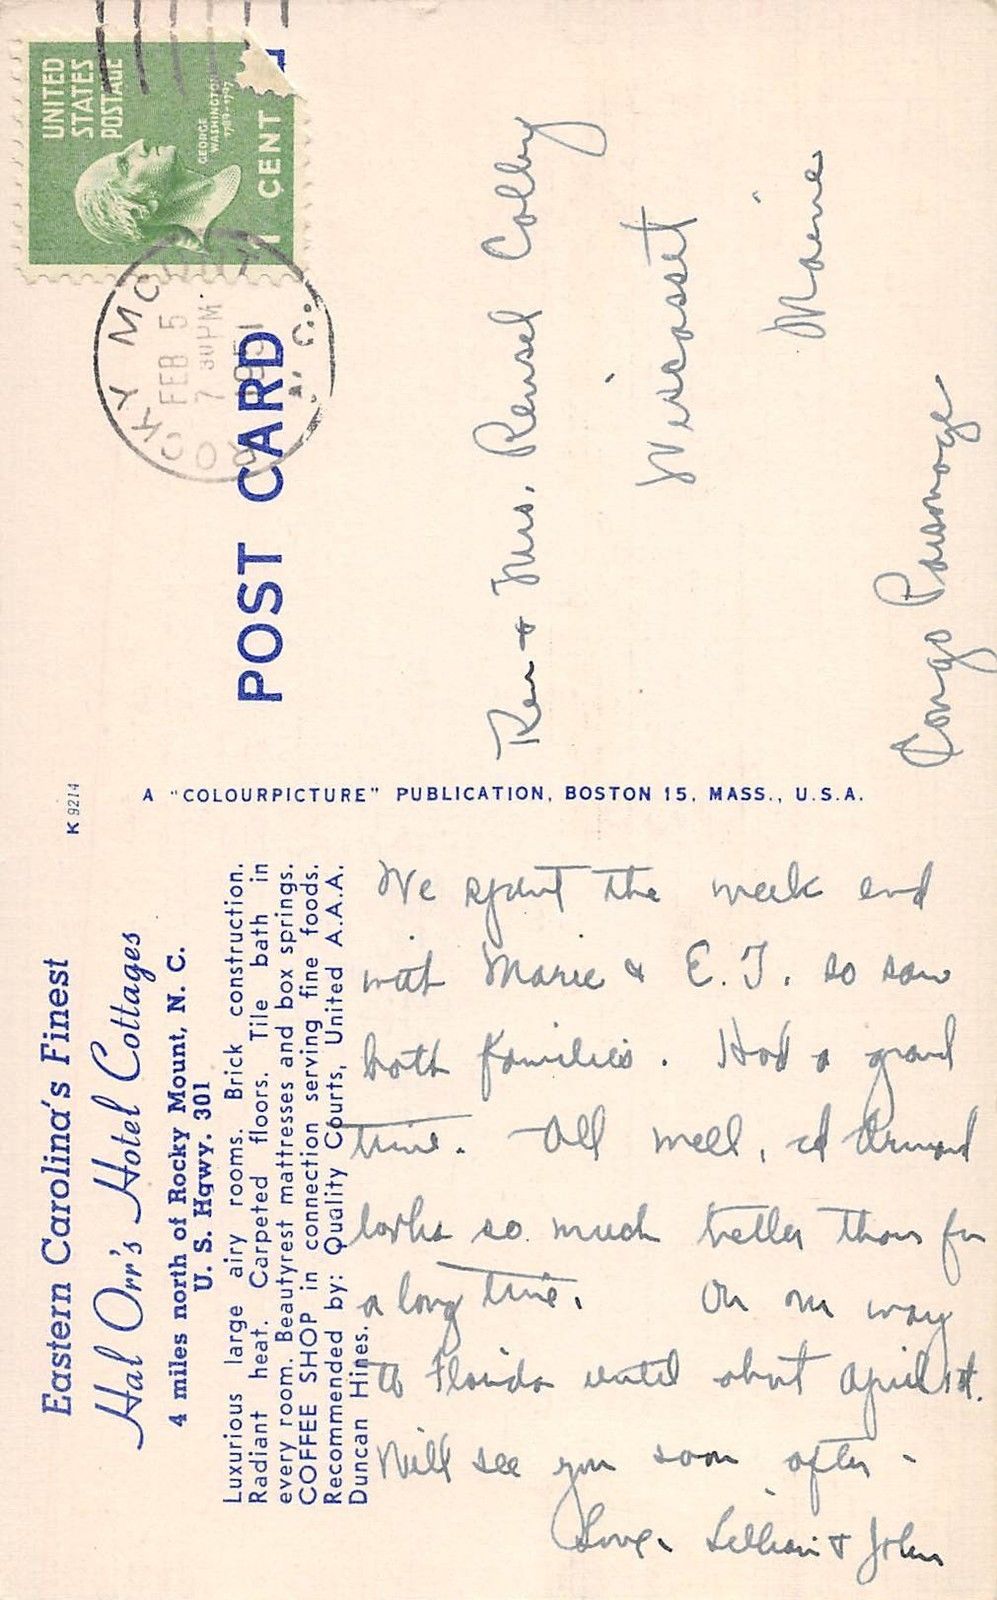 Eastern Carolina's Finest
Hal Orr's Hotel Cottages
4 miles north of Rocky Mount, N. C.
U. S. Hgwy. 301
Luxurious large airy rooms. Brick construction.
Radiant heat. Carpeted floors. Tile bath in
every room. Beautyrest mattresses and box springs.
COFFEE SHOP in connection serving fine foods.
Recommended by: Quality Courts, United A.A.A.
Duncan Hines.
We spent the week end
with Marie & E. J. so saw
both families. Had a grand
time. All well,
looks so much better than for
a long time. On our way
to Florida until about April 1st.
Will see you soon after -
Love, Lillian & John
K 9214
A "COLOURPICTURE" PUBLICATION, BOSTON 15, MASS., U.S.A.
POST CARD
UNITED
STATES
POSTAGE
GEORGE
WASHINGTON
1789-1797
1 CENT
ROCKY MO
FEB 5
7 30 PM
1951
N. C.
Rev & Mrs. Rensel Colby
Wiscasset
Maine
Congo Parsonage